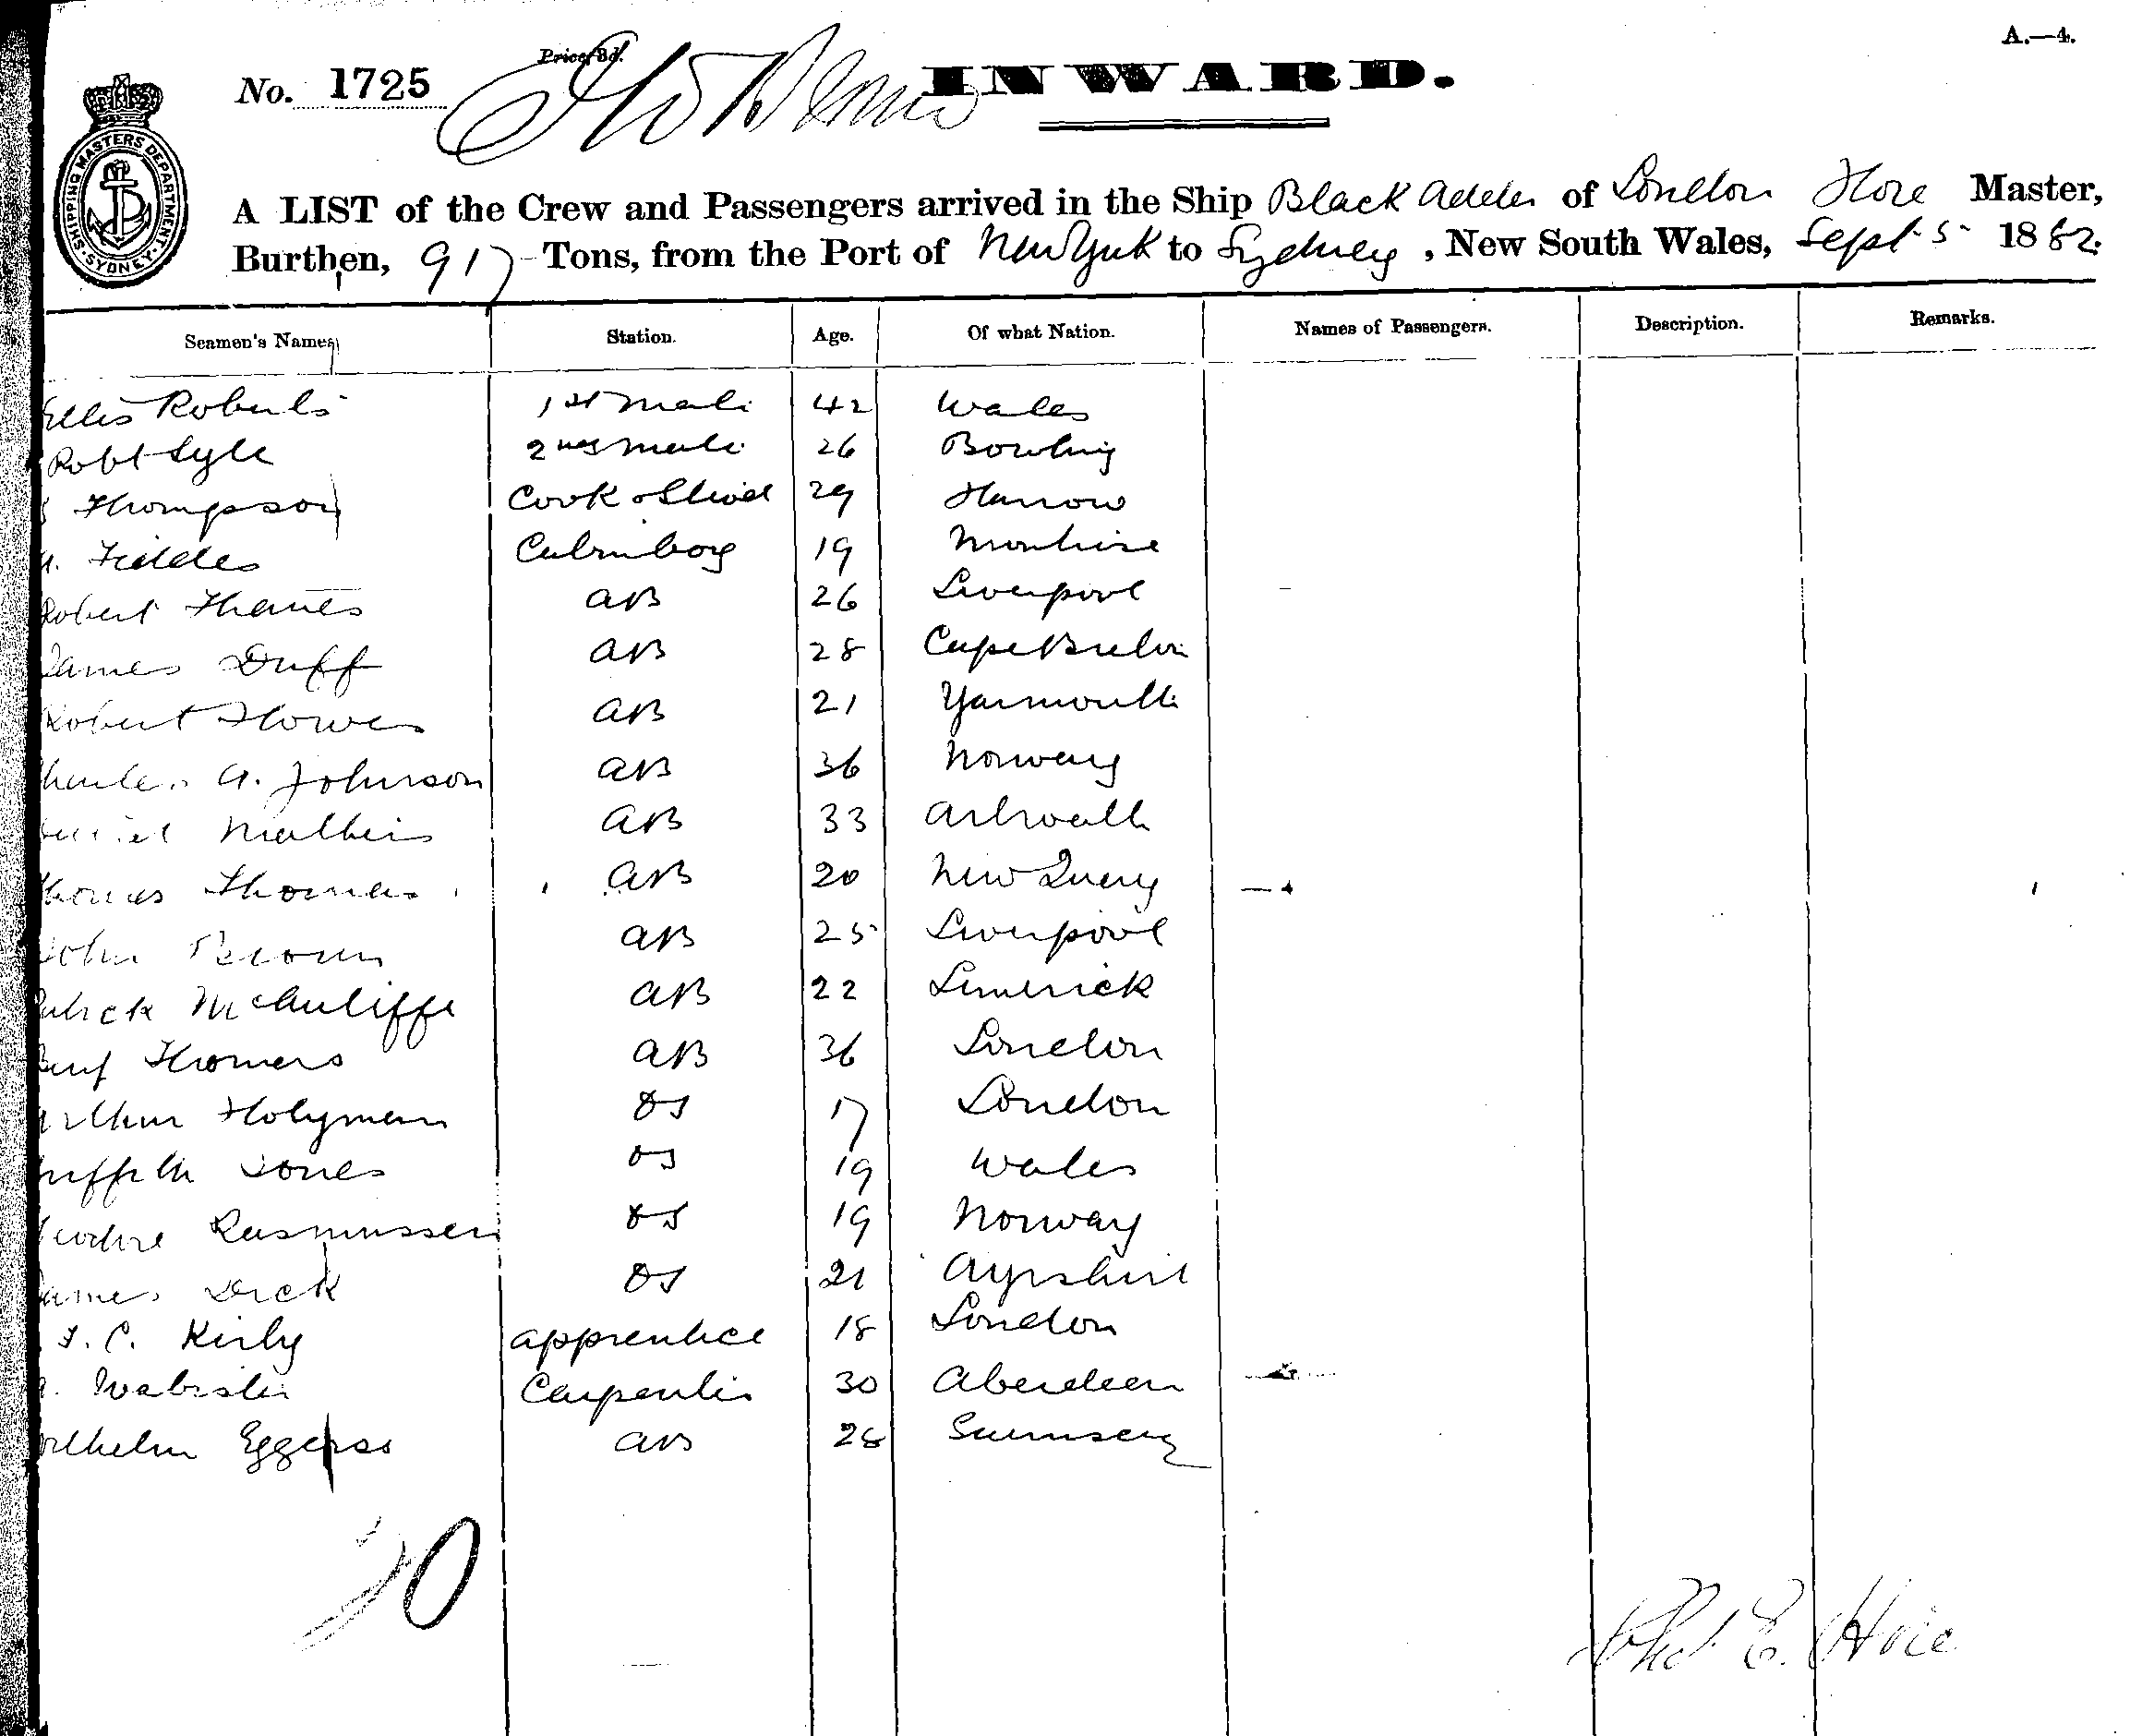 A.—4.
Price 3d.
No. 1725 INWARD.
SHIPPING MASTERS DEPARTMENT
SYDNEY
A LIST of the Crew and Passengers arrived in the Ship Black Adder of London Hore Master,
Burthen, 917 Tons, from the Port of New York to Sydney, New South Wales, Sept 5 1882
Seamen's Names Station. Age. Of what Nation. Names of Passengers. Description. Remarks.
Ellis Roberts 1st Mate 42 Wales
Robt Lyle 2nd Mate 26 Bowling
Thompson Cook & Stwd 29 Harrow
Fieldes Cabin boy 19
Robert AB 26 Liverpool
James Duff AB 28 Cape Breton
Robert Howes AB 21 Yarmouth
Charles A. Johnson AB 36 Norway
Daniel Mathers AB 33
Thomas Thomas AB 20 New Quay
John Brown AB 25 Liverpool
Patrick McAuliffe AB 22 Limerick
Benj Thomas AB 36 London
Arthur Holyman OS 17 London
Griffith Jones OS 19 Wales
Rasmussen OS 19 Norway
James Dick OS 21 Ayrshire
F. C. Kirby apprentice 18 London
Webster Carpenter 30 Aberdeen
Wilhelm Eggerss AB 28
20
E. Hore